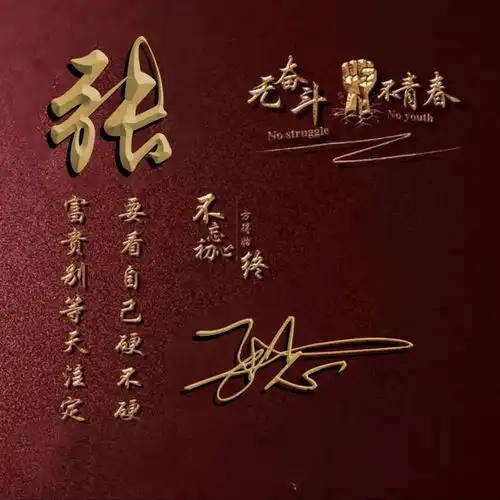 张
无奋斗 不青春
No struggle No youth
不忘初心
方得始终
富贵别等天注定
要看自己硬不硬